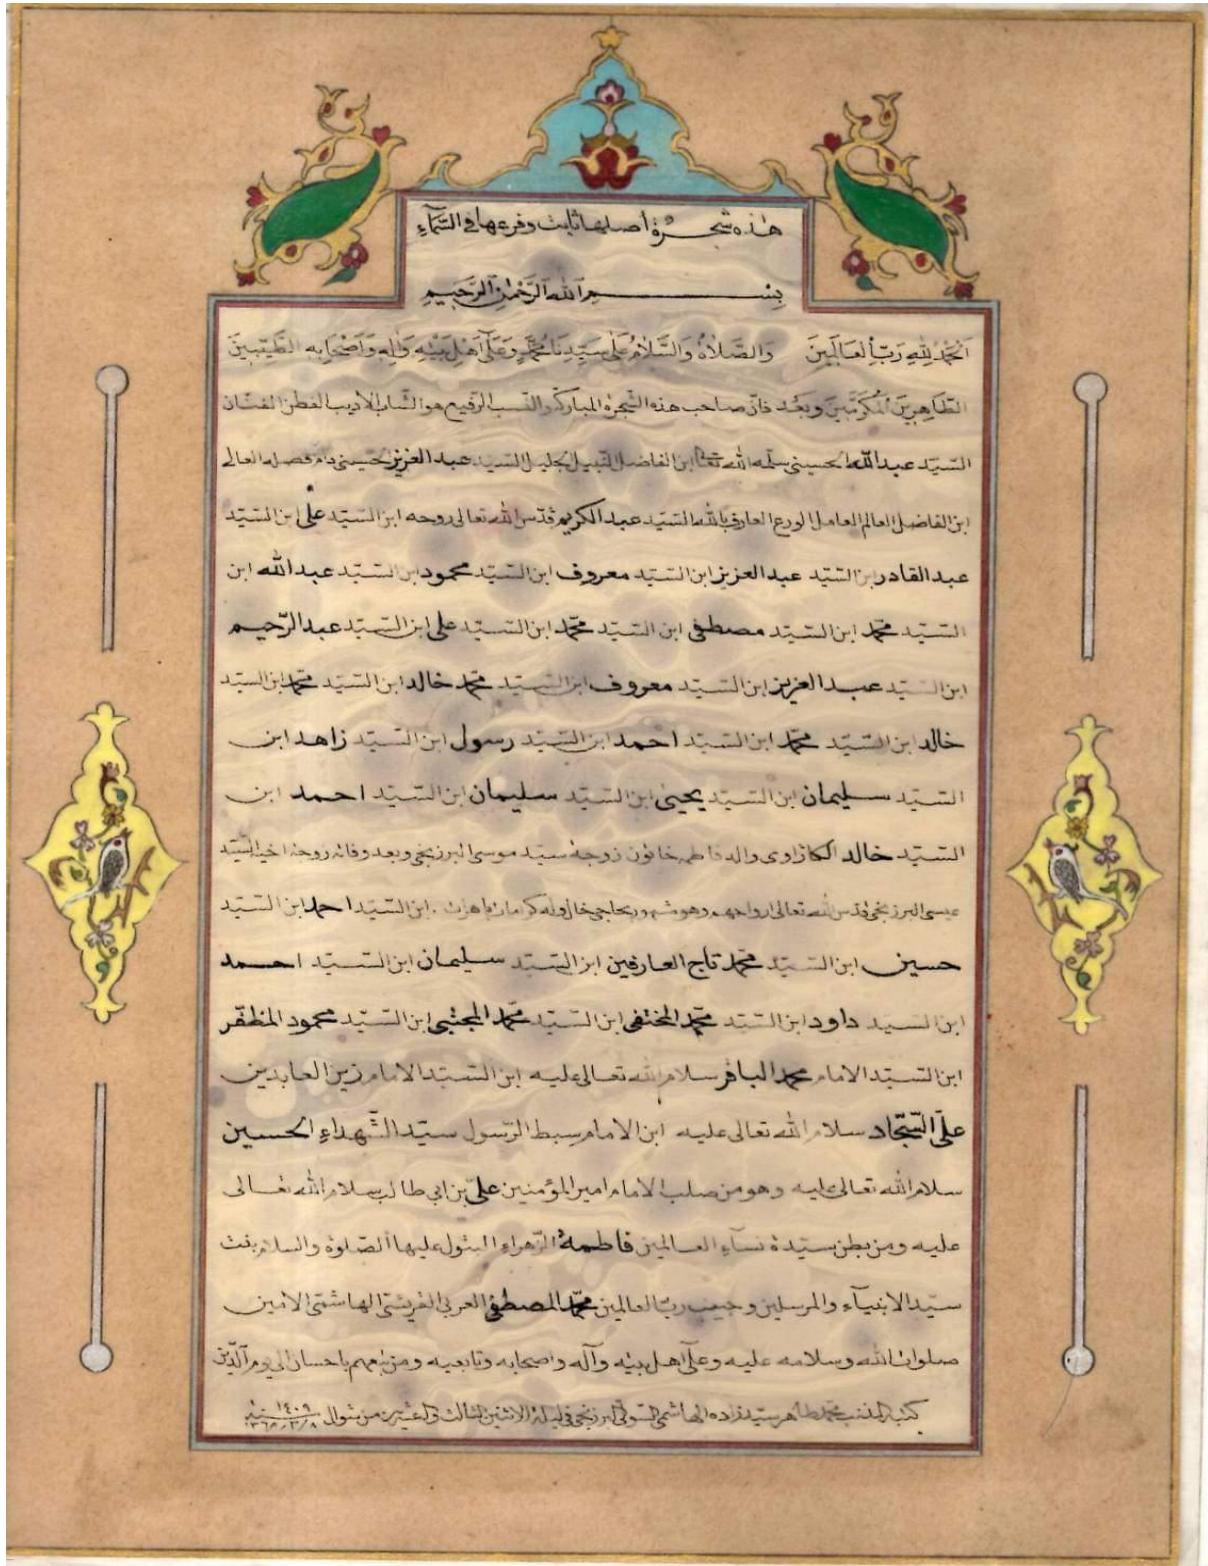 هٰذه شجرة أصلها ثابت وفرعها في السّمآءِ
بِسْمِ اللهِ الرَّحْمٰنِ الرَّحِيمِ
اَلْحَمْدُ لِلّٰهِ رَبِّ الْعَالَمِينَ وَالصَّلاةُ وَالسَّلامُ عَلٰى سَيِّدِنَا مُحَمَّدٍ وَعَلٰى آهْلِ بَيْتِهِ وَآلِهِ وَاَصْحَابِهِ الطَّيِّبِينَ
الطَّاهِرِينَ الْمُكَرَّمِينَ وبعد فانّ صاحب هذه الشجرة المباركة والنسب الرّفيع هو الشاب الاديب الفطن الفنّان
السّيّد عبدالله الحسيني سلّمه الله تعالى ابن الفاضل النبيل الجليل السّيد عبدالعزيز حسيني دام فضله العالي
ابن الفاضل العالم العامل الورع العارف بالله السّيد عبدالكريم قدّس الله تعالى روحه ابن السّيد علي ابن السّيّد
عبدالقادر ابن السّيّد عبدالعزيز ابن السّيّد معروف ابن السّيّد محمود ابن السّيّد عبدالله ابن
السّيّد محمّد ابن السّيّد مصطفى ابن السّيّد محمّد ابن السّيّد علي ابن السّيّد عبدالرّحيم
ابن السّيّد عبدالعزيز ابن السّيّد معروف ابن السّيّد محمّد خالد ابن السّيّد محمّد ابن السيّد
خالد ابن السّيّد محمّد ابن السّيّد احمد ابن السّيّد رسول ابن السّيّد زاهد ابن
السّيّد سليمان ابن السّيّد يحيى ابن السّيّد سليمان ابن السّيّد احمد ابن
السّيّد خالد الكازاوى والد فاطمه خاتون زوجة سيّد موسى البرزنجي وبعد وفاته زوجة اخيه السّيّد
عيسى البرزنجي قدّس الله تعالى ارواحهم وهو مشهور بحاجي خال وله كرامات باهرات . ابن السّيّد احمد ابن السّيّد
حسين ابن السّيّد محمّد تاج العارفين ابن السّيّد سليمان ابن السّيّد احمد
ابن السّيد داود ابن السّيّد محمّد المختفي ابن السّيّد محمّد المجتبي ابن السّيّد محمود المظفّر
ابن السّيّد الامام محمّد الباقر سلام الله تعالى عليه ابن السّيّد الامام زين العابدين
عليّ السّجّاد سلام الله تعالى عليه ابن الامام سبط الرّسول سيّد الشّهداءِ الحسين
سلام الله تعالى عليه وهو من صلب الامام امير المؤمنين عليّ بن ابي طالب سلام الله تعالى
عليه ومن بطن سيّدة نسآءِ العالمين فاطمة الزّهراءِ البتول عليها الصّلوة والسلام بنت
سيّد الانبيآء والمرسلين وحبيب ربّ العالمين محمّد المصطفى العربي القريشي الهاشمي الامين
صلوات الله وسلامه عليه وعلى آهل بيته وآله واصحابه وتابعيه ومن تبعهم باحسان الى يوم الدّين
كتبه المذنب محمد طاهر سيّدزاده الهاشمي البرزنجي في ليلة الاثنين الثالث والعشرين من شوال ١٤٠٩ سنه ١٣٦٨/٣/٨